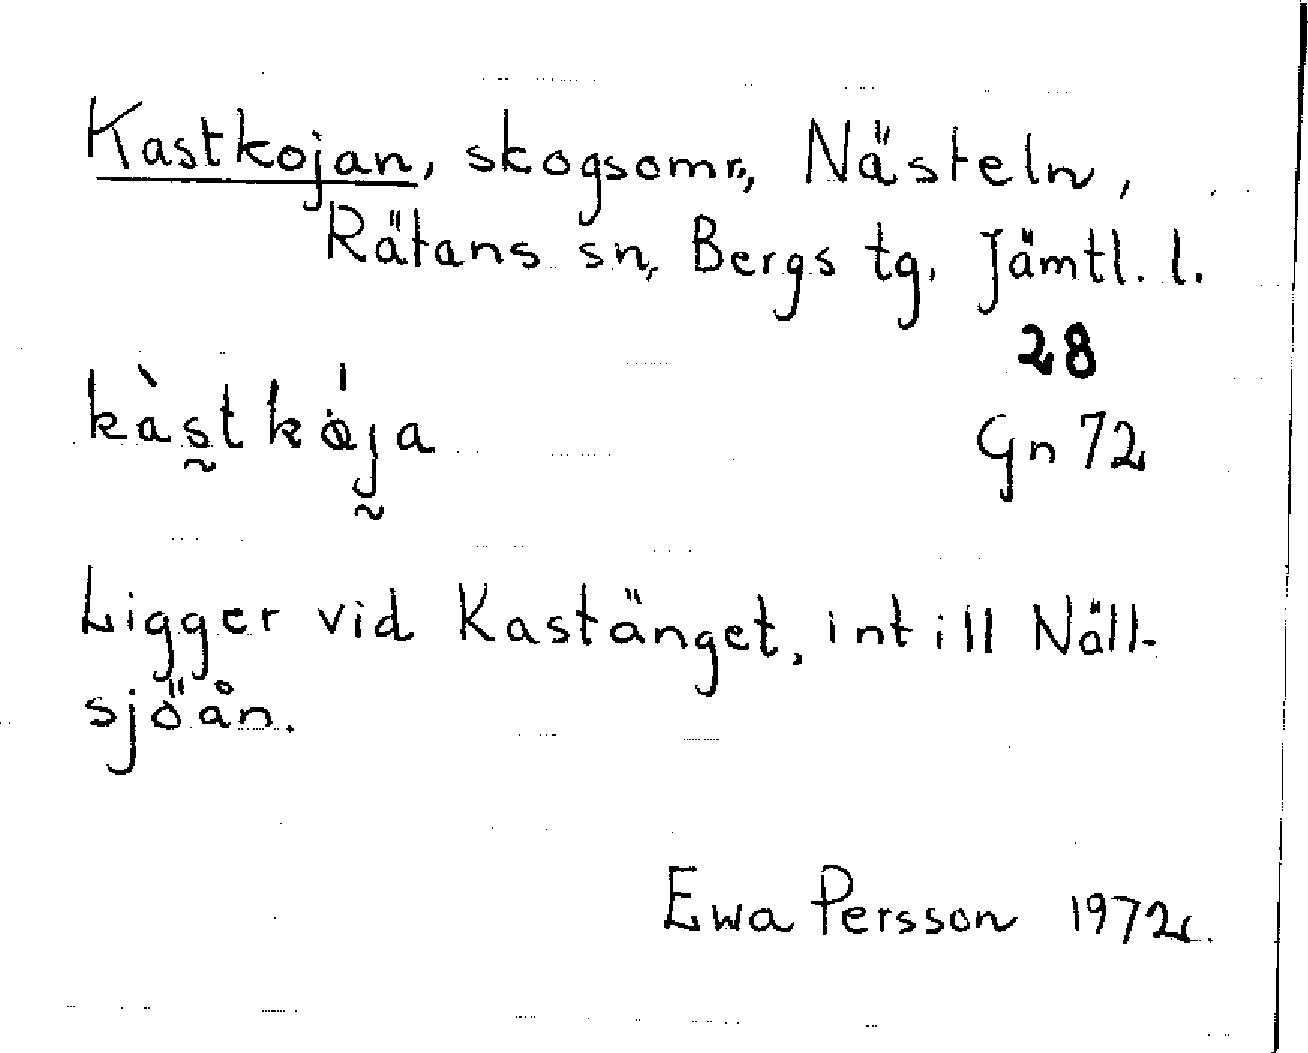 Kastkojan, skogsomr., Nästeln,
Rätans sn, Bergs tg. Jämtl. l.
28
kàstkája
Gn 72
Ligger vid Kastänget, intill Näll-
sjöån.
Ewa Persson 1972.